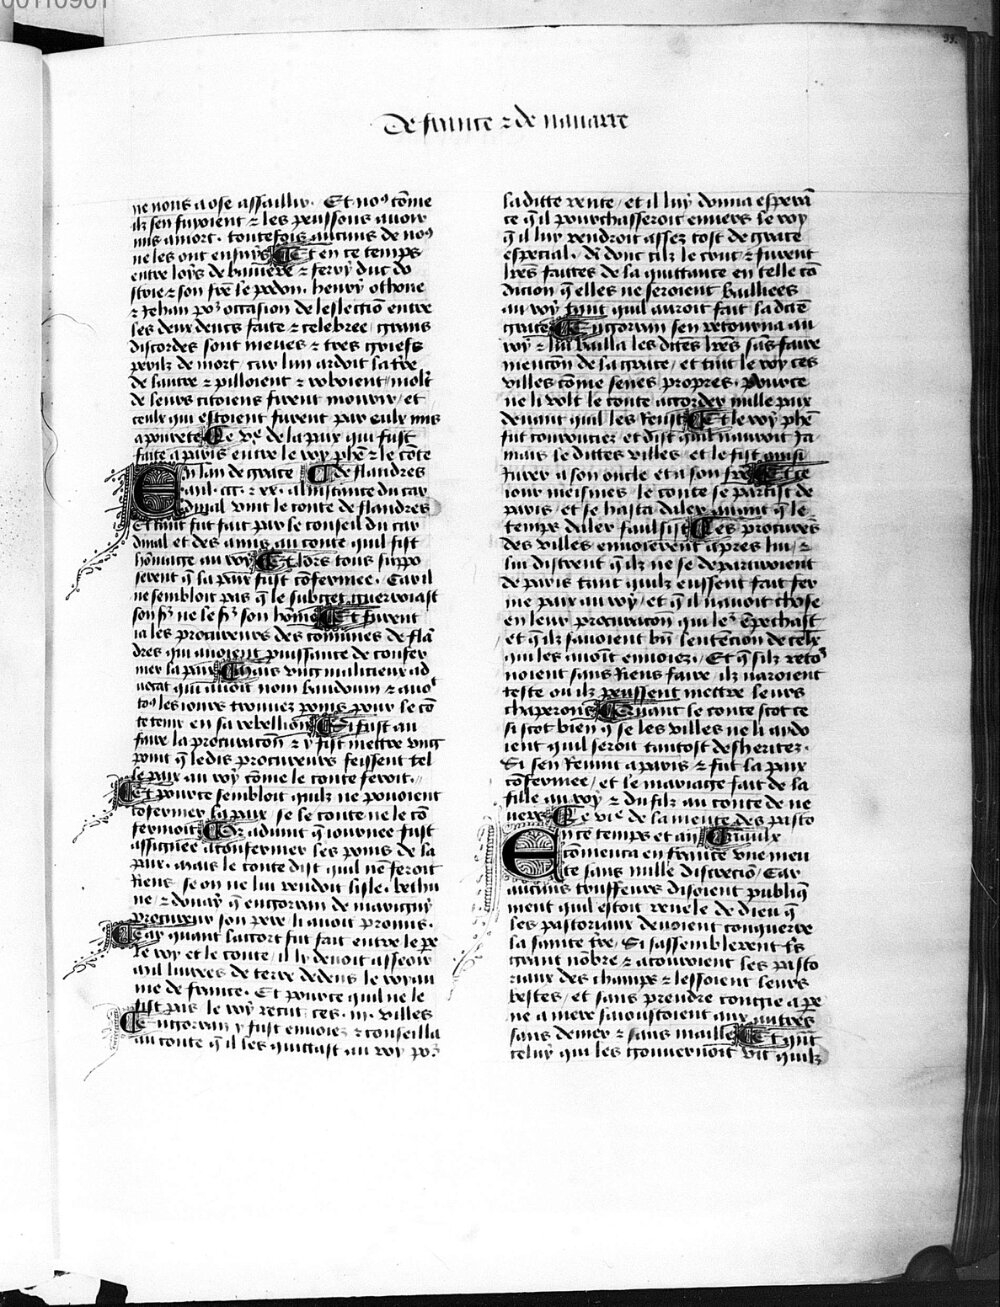 De france ⁊ de nauarre
ne nous a ose assaillir. Et noꝰ cōme
ilz sen fuyoient ⁊ les peussons auoir
mis a mort. toutefois aucuns de noꝰ
ne les ont ensuys Et en ce temps
entre loys de bauiere ⁊ ferry duc do
stoie ⁊ son frē le pᵉdom. henry othone
⁊ Jehan poꝛ occasion de leslectiō entre
les deux deuꝰ faite ⁊ celebree / grans
discordes sont meues ⁊ tres griefs
perilz de mort. car lun ardoit la t̄re
de lautre ⁊ pilloient ⁊ roboient / molt
de leurs citoiens furent mourir / et
ceulx qui estoient furent par eulx mis
a pourete Le vᵉ de la paix qui fust
faite a paris entre le roy phē ⁊ le cōte
En lan de grace de flandres
mil. ccc. ⁊ xx. a linstance du car
dinal vint le conte de flandres
Et tant fut fait par le conseil du car
dinal et des amis au conte quil fist
hōmage au roy Et lors tous suppo
serent q̄ la paix fust cōfermee. Car il
ne sembloit pas q̄ le subget guerroiast
son sʳ ne le sʳ son hōme Et furent
la les procureurs des cōmunes de flā
dres qui auoient puissance de confer
mer la paix Mais vng malicieux ad
uocat qui auoit nom baudouin ⁊ auoit
toꝰ les iours trouuez poins pour le cō
te tenir en sa rebellion Si fust au
faire la procuracōn ⁊ y fist mettre vng
point q̄ lesdis procureurs feissent tel
le paix au roy cōme le conte feroit.
Et pource sembloit quilz ne pouoient
cōfermer la paix se le conte ne le cō
fermoit Or aduint q̄ iournee fust
assignee a confermer les poins de la
paix. mais le conte dist quil ne feroit
Riens se on ne lui rendoit lisle. bethu
ne ⁊ douay q̄ engorran de marigny
procureur son pere li auoit promis.
Car quant laccort fut fait entre le pe
le roy et le conte, il ly deuoit asseoir
mil liures de terre dedens le royau
me de france. Et pource quil ne le
fist pas le roy retint ces .iii. villes
Engorran y fust enuoiez ⁊ conseilla
au conte q̄ il les quittast au roy poꝛ
la ditte rente / et il luy donna esperā
ce q̄ il pourchasseroit enuers le roy
q̄ il luy rendroit assez tost de grace
especial. De donc cilz le crut ⁊ furent
lrēs faittes de la quittance en telle cō
dicion q̄ elles ne seroient bailliees
au roy tant quil auroit fait la ditte
grace Engorran sen retourna au
roy ⁊ lui bailla les dites lrēs sās faire
mencōn de la grace / et tint le roy ces
villes cōme senes propres. Pource
ne li volt le conte accorder nulle paix
deuant quil les Reust Et le roy phē
fut courouciez et dist quil nauroit Ja
mais le dittes villes / et le fist ainsi
iurer a son oncle et a son frē Et ce
iour meismes le conte se partist de
paris / et se hasta daler auant q̄ le
temps daler faulsist Les procures
des villes enuoierent apres lui / ⁊
lui distrent q̄ ilz ne se departiroient
de paris tant quilz eussent fait fer
me paix au roy / et q̄ il nauoit chose
en leur procuracon qui leꝰ empechast
et q̄ ilz sauoient bn̄ lentencōn de ceulx
qui les auoīt enuoiez. Et q̄ silz reto
noient sans Riens faire / ilz naroient
teste ou ilz peussent mettre leurs
chaperons Quant le conte scot ce
si scot bien q̄ se les villes ne li aido
ient quil seroit tantost desheritez.
Si sen Reuint a paris ⁊ fut la paix
cōfermee / et le mariage fait de la
fille au roy ⁊ du filz au conte de ne
uers Le viᵉ de la meute des pasto
En ce temps et an riaulx
cōmenca en france vne meu
te sans nulle discrecō / Car
aucuns truffeurs disoient publiq̄
ment quil estoit reuele de dieu q̄
les pastoriaux deuoient conquerre
la sainte t̄re / Si sassemblerent t̄s
grant nōbre ⁊ acouroient les pasto
riaux des champs ⁊ lessoient leurs
bestes / et sans prendre congie a pe
ne a mere saioustoient aux autres
sans denier ⁊ sans maille Et qn̄t
celuy qui les gouuernoit vit quilz